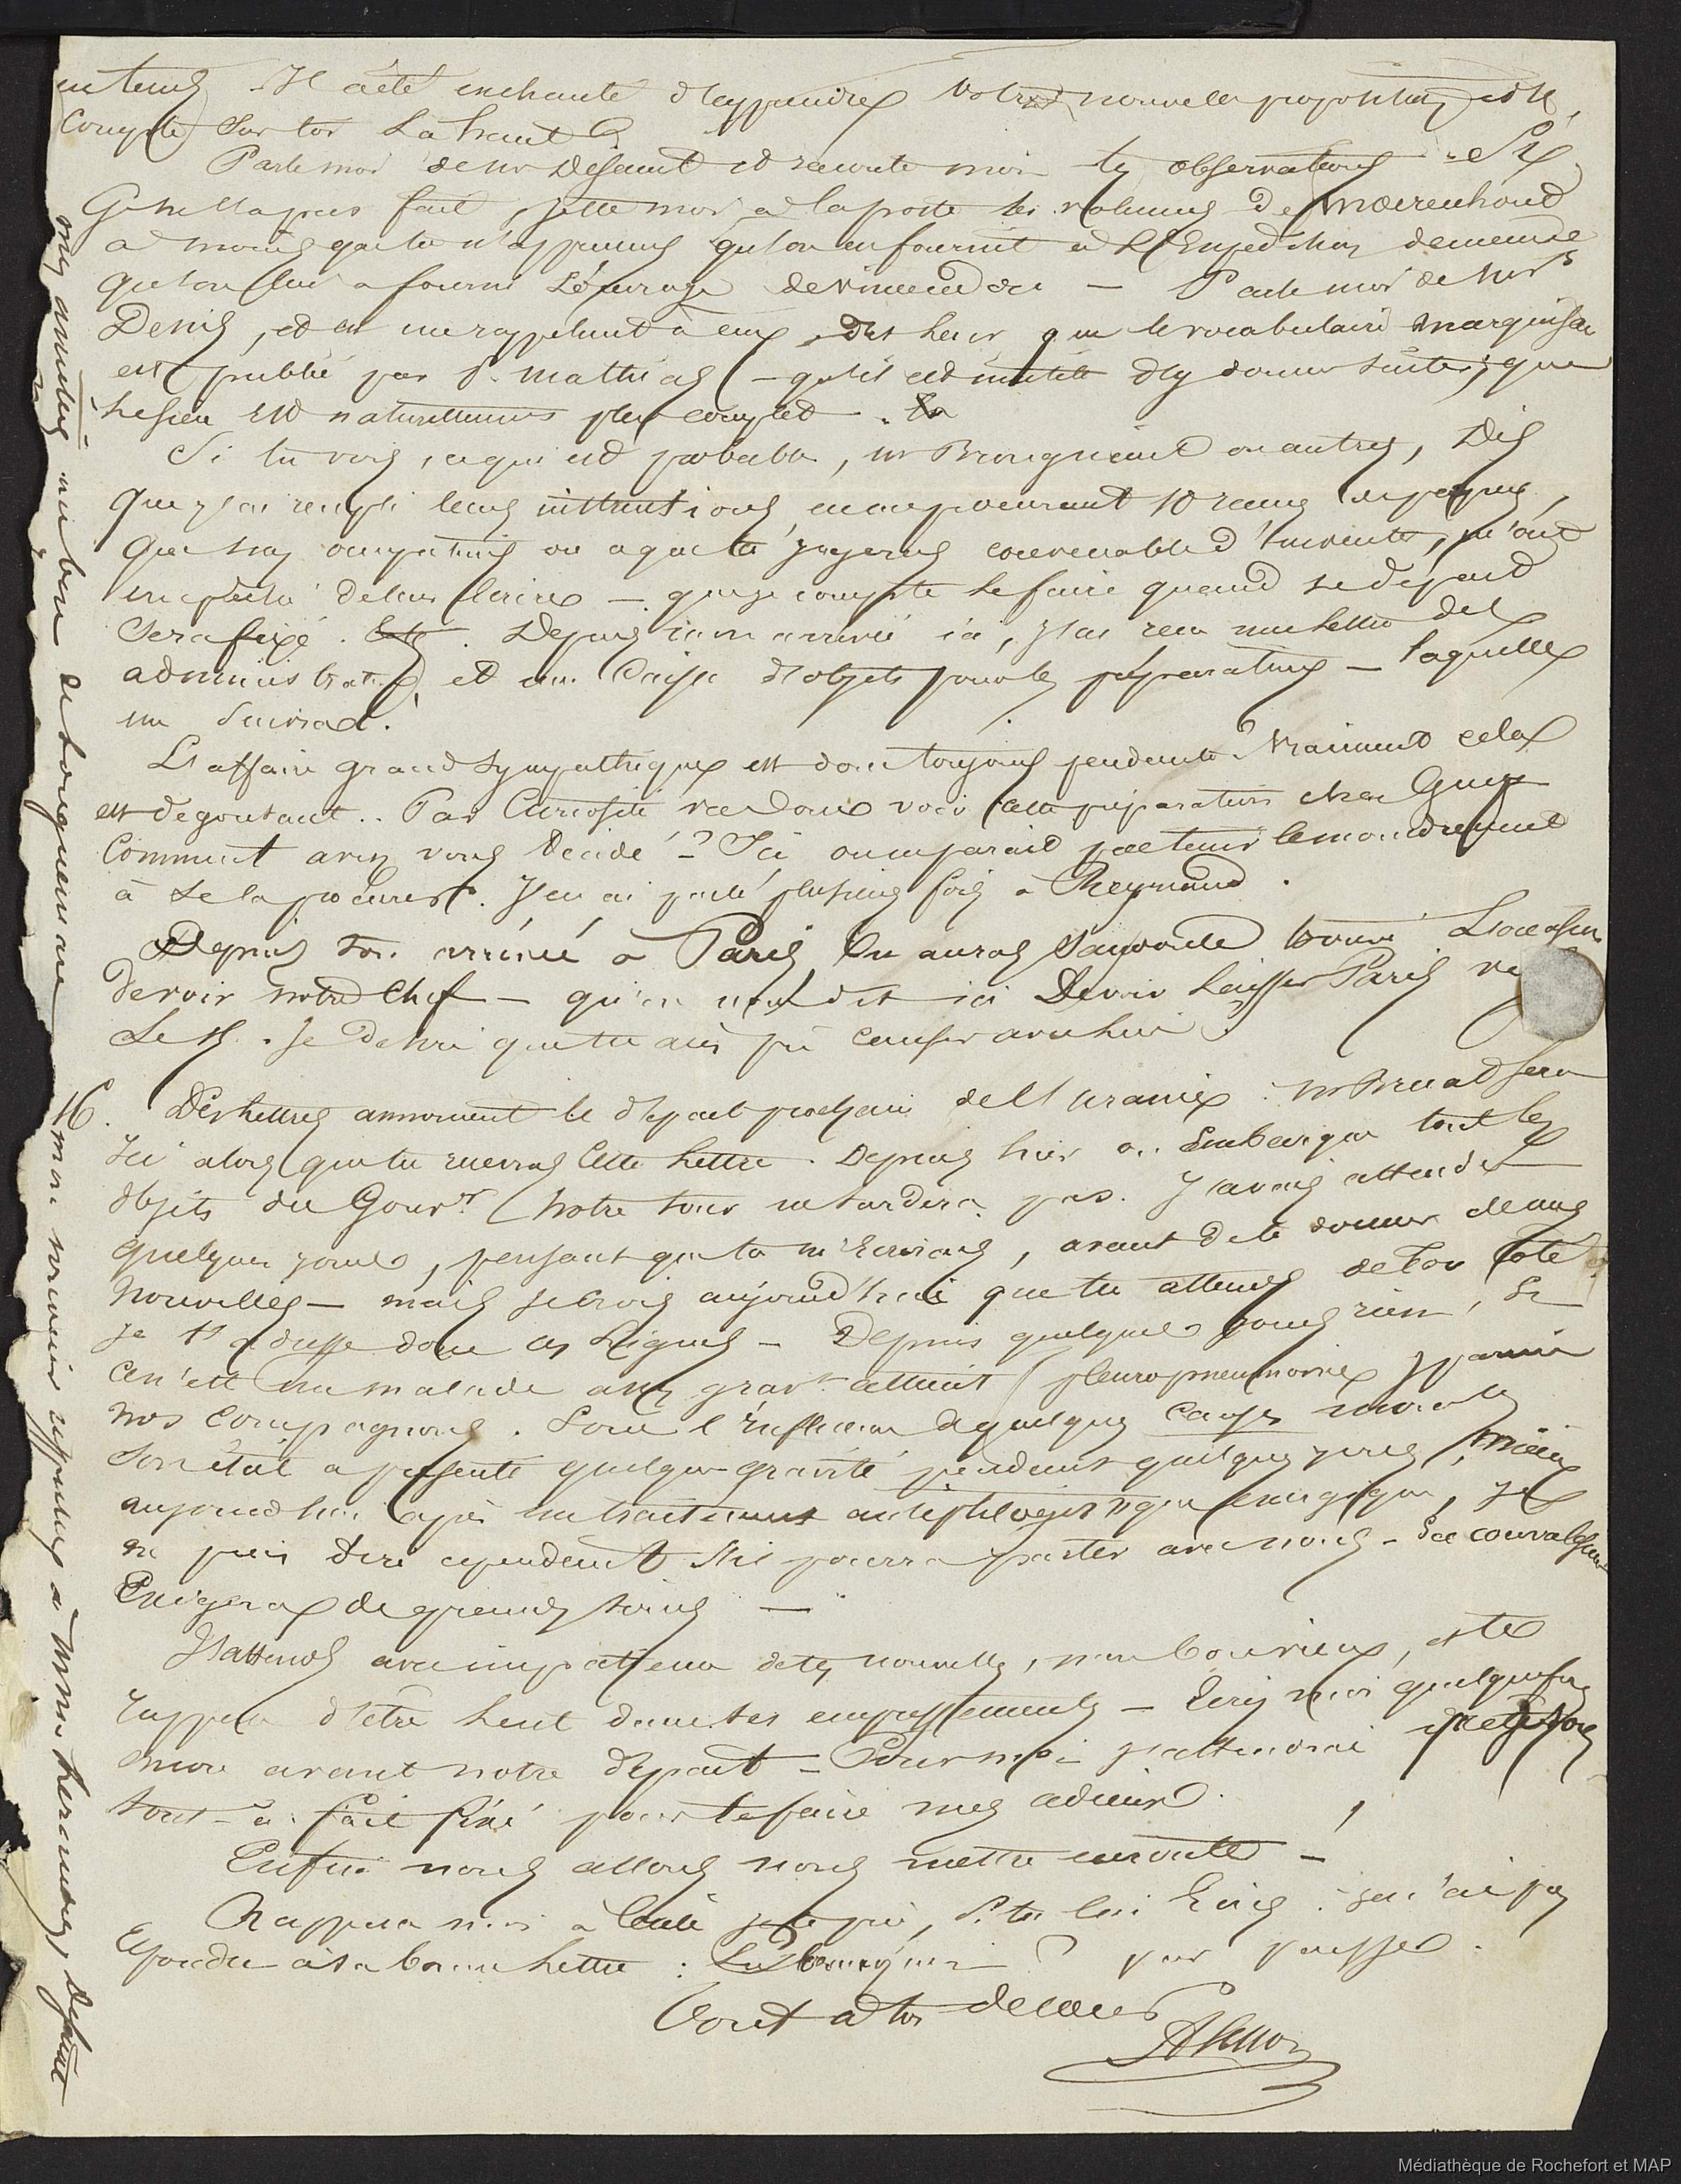 entend. Il a été enchanté d'apprendre votre nouvelle proposition et il
compte sur toi là haut.
Parle moi de Mr Défaut et raconte moi tes observations - Si
ce n'est pas fait, jette moi à la poste les volumes de Moerenhout
à moins que tu n'apprennes qu'on en fournit à l'Expédition de même
qu'on lui a fourni l'ouvrage de Vincendon - Parle moi de Mrs
Denis, et en me rappelant à eux, dis leur que le vocabulaire marquisien
est publié par P. Mathias - qu'il est inutile d'y donner suite, que
le sien est naturellement plus complet.
Si tu vois, ce qui est probable, Mr Brongniart ou autres, dis
que j'ai rempli leurs instructions, en me procurant 10 rames de papier,
que mes occupations ou ce que tu jugeras convenable d'inventer, m'ont
empêché de leur écrire - que je compte le faire quand le départ
sera fixé. Depuis mon arrivée ici, j'ai reçu une lettre des
administrateurs et une caisse d'objets pour les préparations - laquelle
me suivra.
L'affaire grand sympathique est donc toujours pendante ? Vraiment cela
est dégoutant.. Par curiosité va donc voir cette préparation chez Guy
Comment avez vous décidé ? Ici on me paraît pas tenir le moindrement
à se la procurer. J'en ai parlé plusieurs fois à Reynaud.
Depuis ton arrivée à Paris tu auras sans doute trouvé l'occasion
de voir notre chef - qu'on nous dit ici devoir laisser Paris
le 15. Je désire que tu aies pu causer avec lui.
16. Des lettres annoncent le départ prochain de l'Uranie : Mr Bruat sera
ici alors que tu recevras cette lettre. Depuis hier on embarque tout les
objets du Gouvt. Notre tour ne tardera pas. J'avais attendu
quelques jours, pensant que tu m'écrirais, avant de te donner de mes
nouvelles - mais je crois aujourd'hui que tu attends de ton côté et
je t'adresse donc ces lignes - Depuis quelques jours rien, si
ce n'est un malade assez gravt atteint (pleuropneumonie) parmi
nos compagnons. Sous l'influence de quelques causes morales
son état a présenté quelque gravité pendant quelques jours; mieux
aujourd'hui après un traitement antiphlogistique énergique, je
ne puis dire cependant s'il pourra partir avec nous - Sa convalescence
exigera de grands soins -
J'attends avec impatience de tes nouvelles, mon bon vieux, et te
rappelle d'être lent dans tes empressements - Ecris moi quelquefois
encore avant notre départ - Pour moi j'attendrai qu'il soit
tout-à-fait fixé pour te faire mes adieux.
Enfin nous allons nous mettre en route - !
Rappelle moi à je te prie, si tu lui écris : je n'ai pas
répondu à sa bonne lettre : par paresse.
Tout à toi de cœur
mes amitiés au bon
mon souvenir respectueux à Mme hernandez, Défaut
Médiathèque de Rochefort et MAP